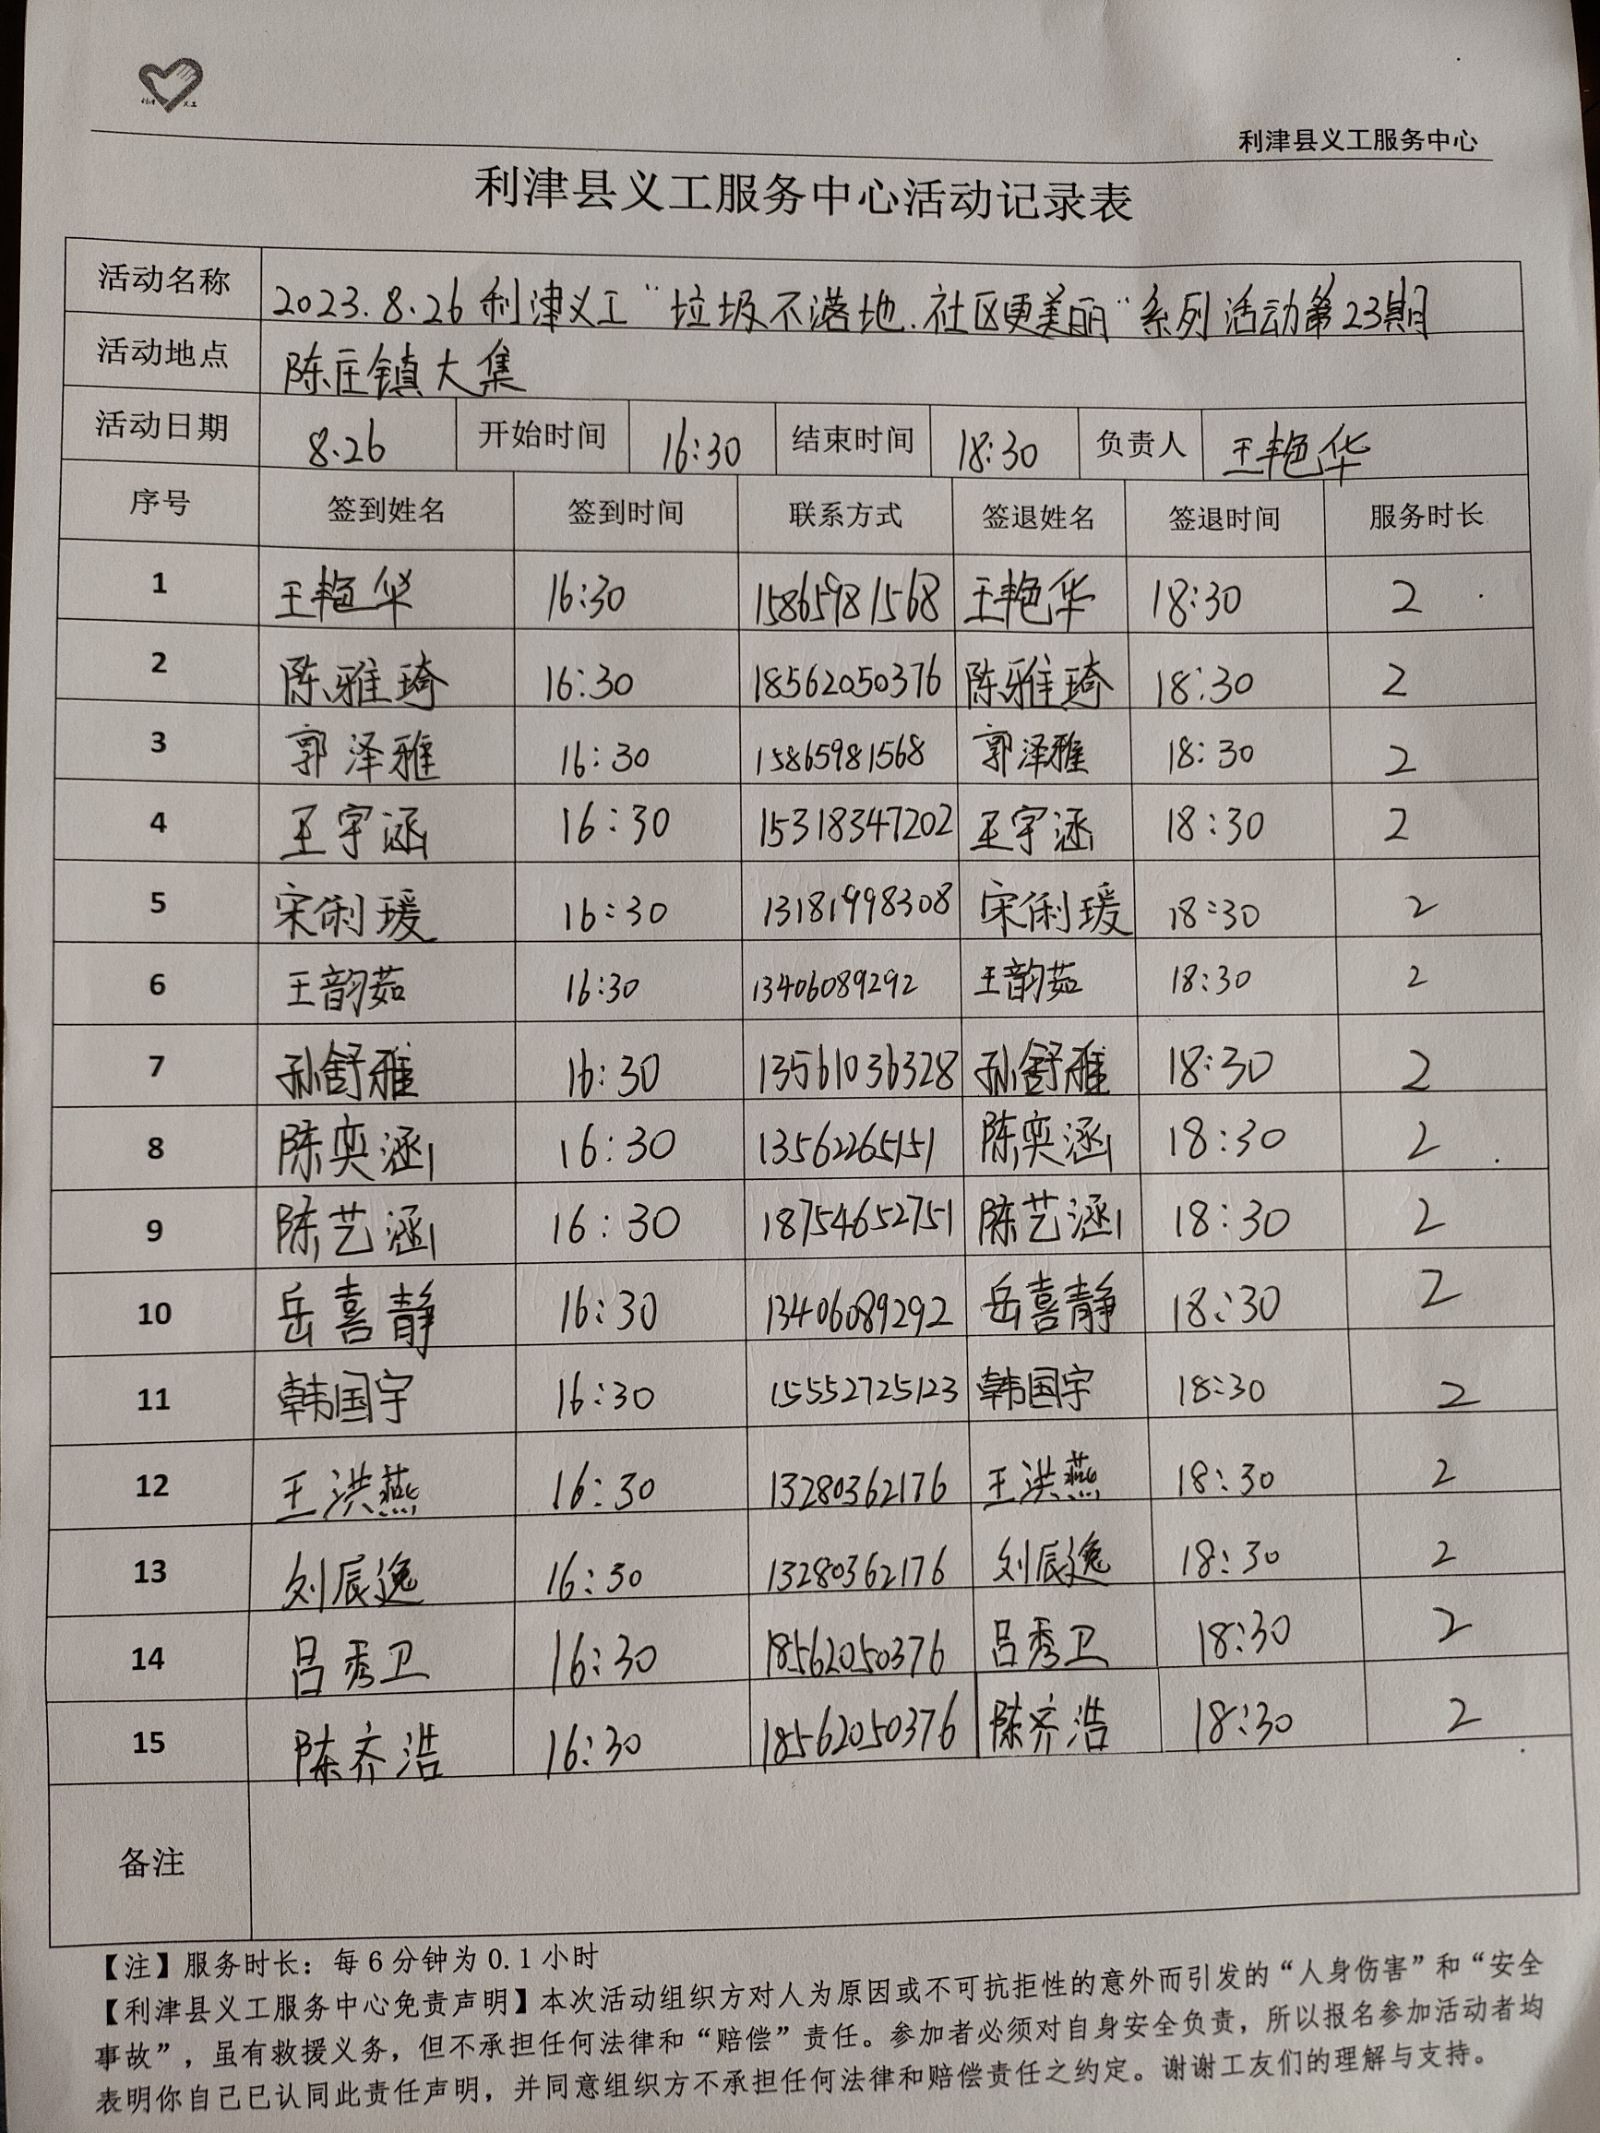 利津 义工
利津县义工服务中心
利津县义工服务中心活动记录表
活动名称 2023.8.26利津义工“垃圾不落地.社区更美丽”系列活动第23期
活动地点 陈庄镇大集
活动日期 8.26 开始时间 16:30 结束时间 18:30 负责人 王艳华
序号 签到姓名 签到时间 联系方式 签退姓名 签退时间 服务时长
1 王艳华 16:30 15865981568 王艳华 18:30 2
2 陈雅琦 16:30 18562050376 陈雅琦 18:30 2
3 郭泽雅 16:30 15865981568 郭泽雅 18:30 2
4 王宇涵 16:30 15318347202 王宇涵 18:30 2
5 宋俐瑗 16:30 13181998308 宋俐瑗 18:30 2
6 王韵茹 16:30 13406089292 王韵茹 18:30 2
7 孙舒雅 16:30 13561036328 孙舒雅 18:30 2
8 陈奕涵 16:30 13562265151 陈奕涵 18:30 2
9 陈艺涵 16:30 18754652751 陈艺涵 18:30 2
10 岳喜静 16:30 13406089292 岳喜静 18:30 2
11 韩国宇 16:30 15552725123 韩国宇 18:30 2
12 王洪燕 16:30 13280362176 王洪燕 18:30 2
13 刘辰逸 16:30 13280362176 刘辰逸 18:30 2
14 吕秀卫 16:30 18562050376 吕秀卫 18:30 2
15 陈齐浩 16:30 18562050376 陈齐浩 18:30 2
备注
【注】服务时长：每6分钟为0.1小时
【利津县义工服务中心免责声明】本次活动组织方对人为原因或不可抗拒性的意外而引发的“人身伤害”和“安全
事故”，虽有救援义务，但不承担任何法律和“赔偿”责任。参加者必须对自身安全负责，所以报名参加活动者均
表明你自己已认同此责任声明，并同意组织方不承担任何法律和赔偿责任之约定。谢谢工友们的理解与支持。